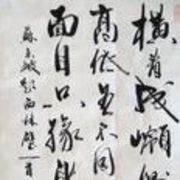 横看成嶺側
高低不同
面目只緣身
蘇東坡題西林壁一首